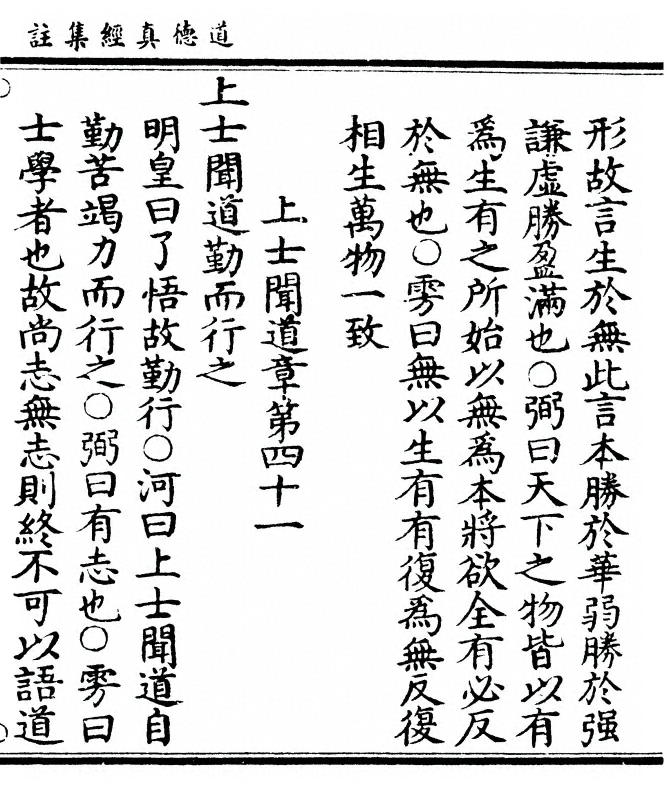 道德真經集註
形故言生於無此言本勝於華弱勝於强
謙虛勝盈滿也○弼曰天下之物皆以有
爲生有之所始以無爲本將欲全有必反
於無也○雱曰無以生有有復爲無反復
相生萬物一致
上士聞道章第四十一
上士聞道勤而行之
明皇曰了悟故勤行○河曰上士聞道自
勤苦竭力而行之○弼曰有志也○雱曰
士學者也故尚志無志則終不可以語道